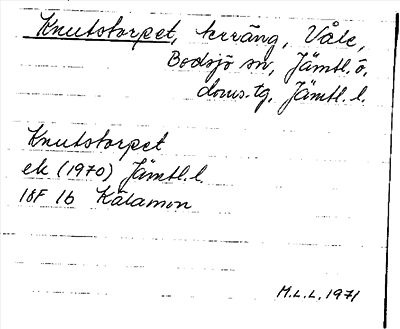 Knutstorpet, terräng, Våle,
Bodsjö sn, Jämtl. ö.
doms.tg, Jämtl. l.
Knutstorpet
ek (1970) Jämtl. l.
18F 1b Kälamon
M.L.L. 1971